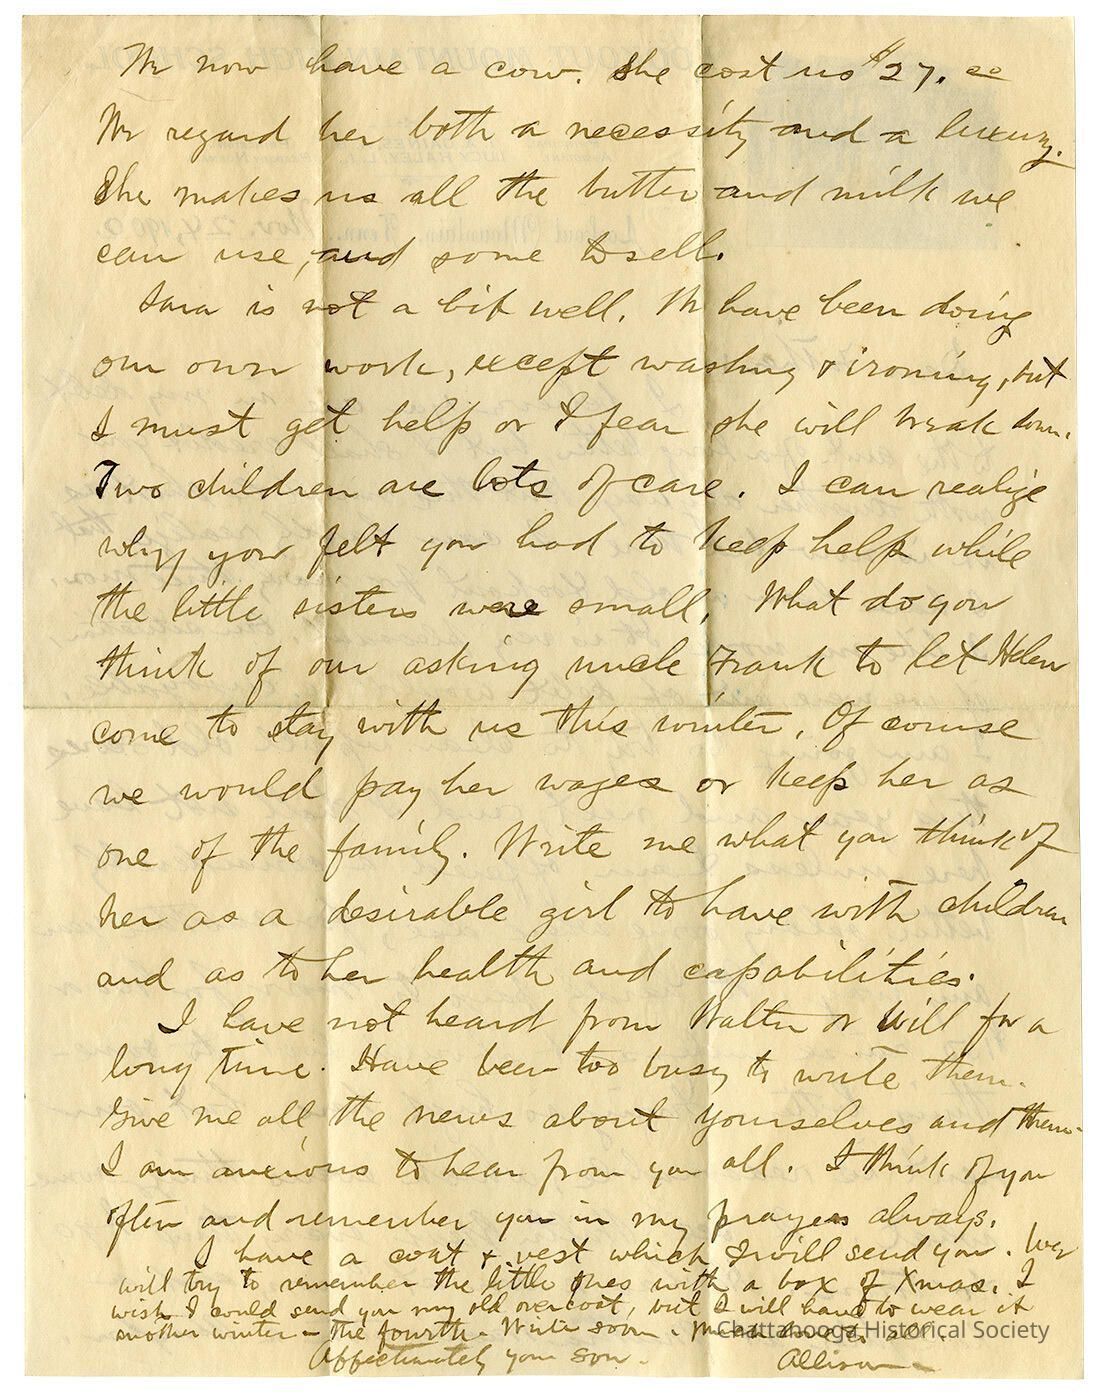 We now have a cow. She cost us $27.00
We regard her both a necessity and a luxury.
She makes us all the butter and milk we
can use, and some to sell.
Sara is not a bit well. We have been doing
our own work, except washing & ironing, but
I must get help or I fear she will break down.
Two children are lots of care. I can realize
why you felt you had to keep help while
the little sisters were small. What do you
think of our asking uncle Frank to let Helen
come to stay with us this winter. Of course
we would pay her wages or keep her as
one of the family. Write me what you think of
her as a desirable girl to have with children
and as to her health and capabilities.
I have not heard from Walter or Will for a
long time. Have been too busy to write them.
Give me all the news about yourselves and them.
I am anxious to hear from you all. I think of you
often and remember you in my prayers always.
I have a coat & vest which I will send you. We
will try to remember the little ones with a box of Xmas. I
wish I could send you my old overcoat, but I will have to wear it
another winter - the fourth. Write soon.
Chattahooga Historical Society
Affectionately your son.
Allison